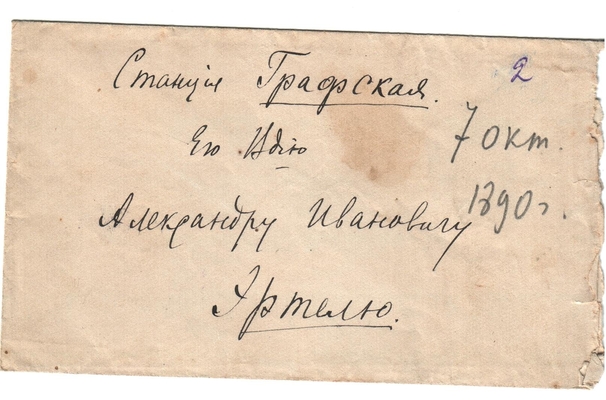 Станція Графская. 2
Его Вдію
7 окт.
1890 г.
Александру Ивановичу
Эртелю.